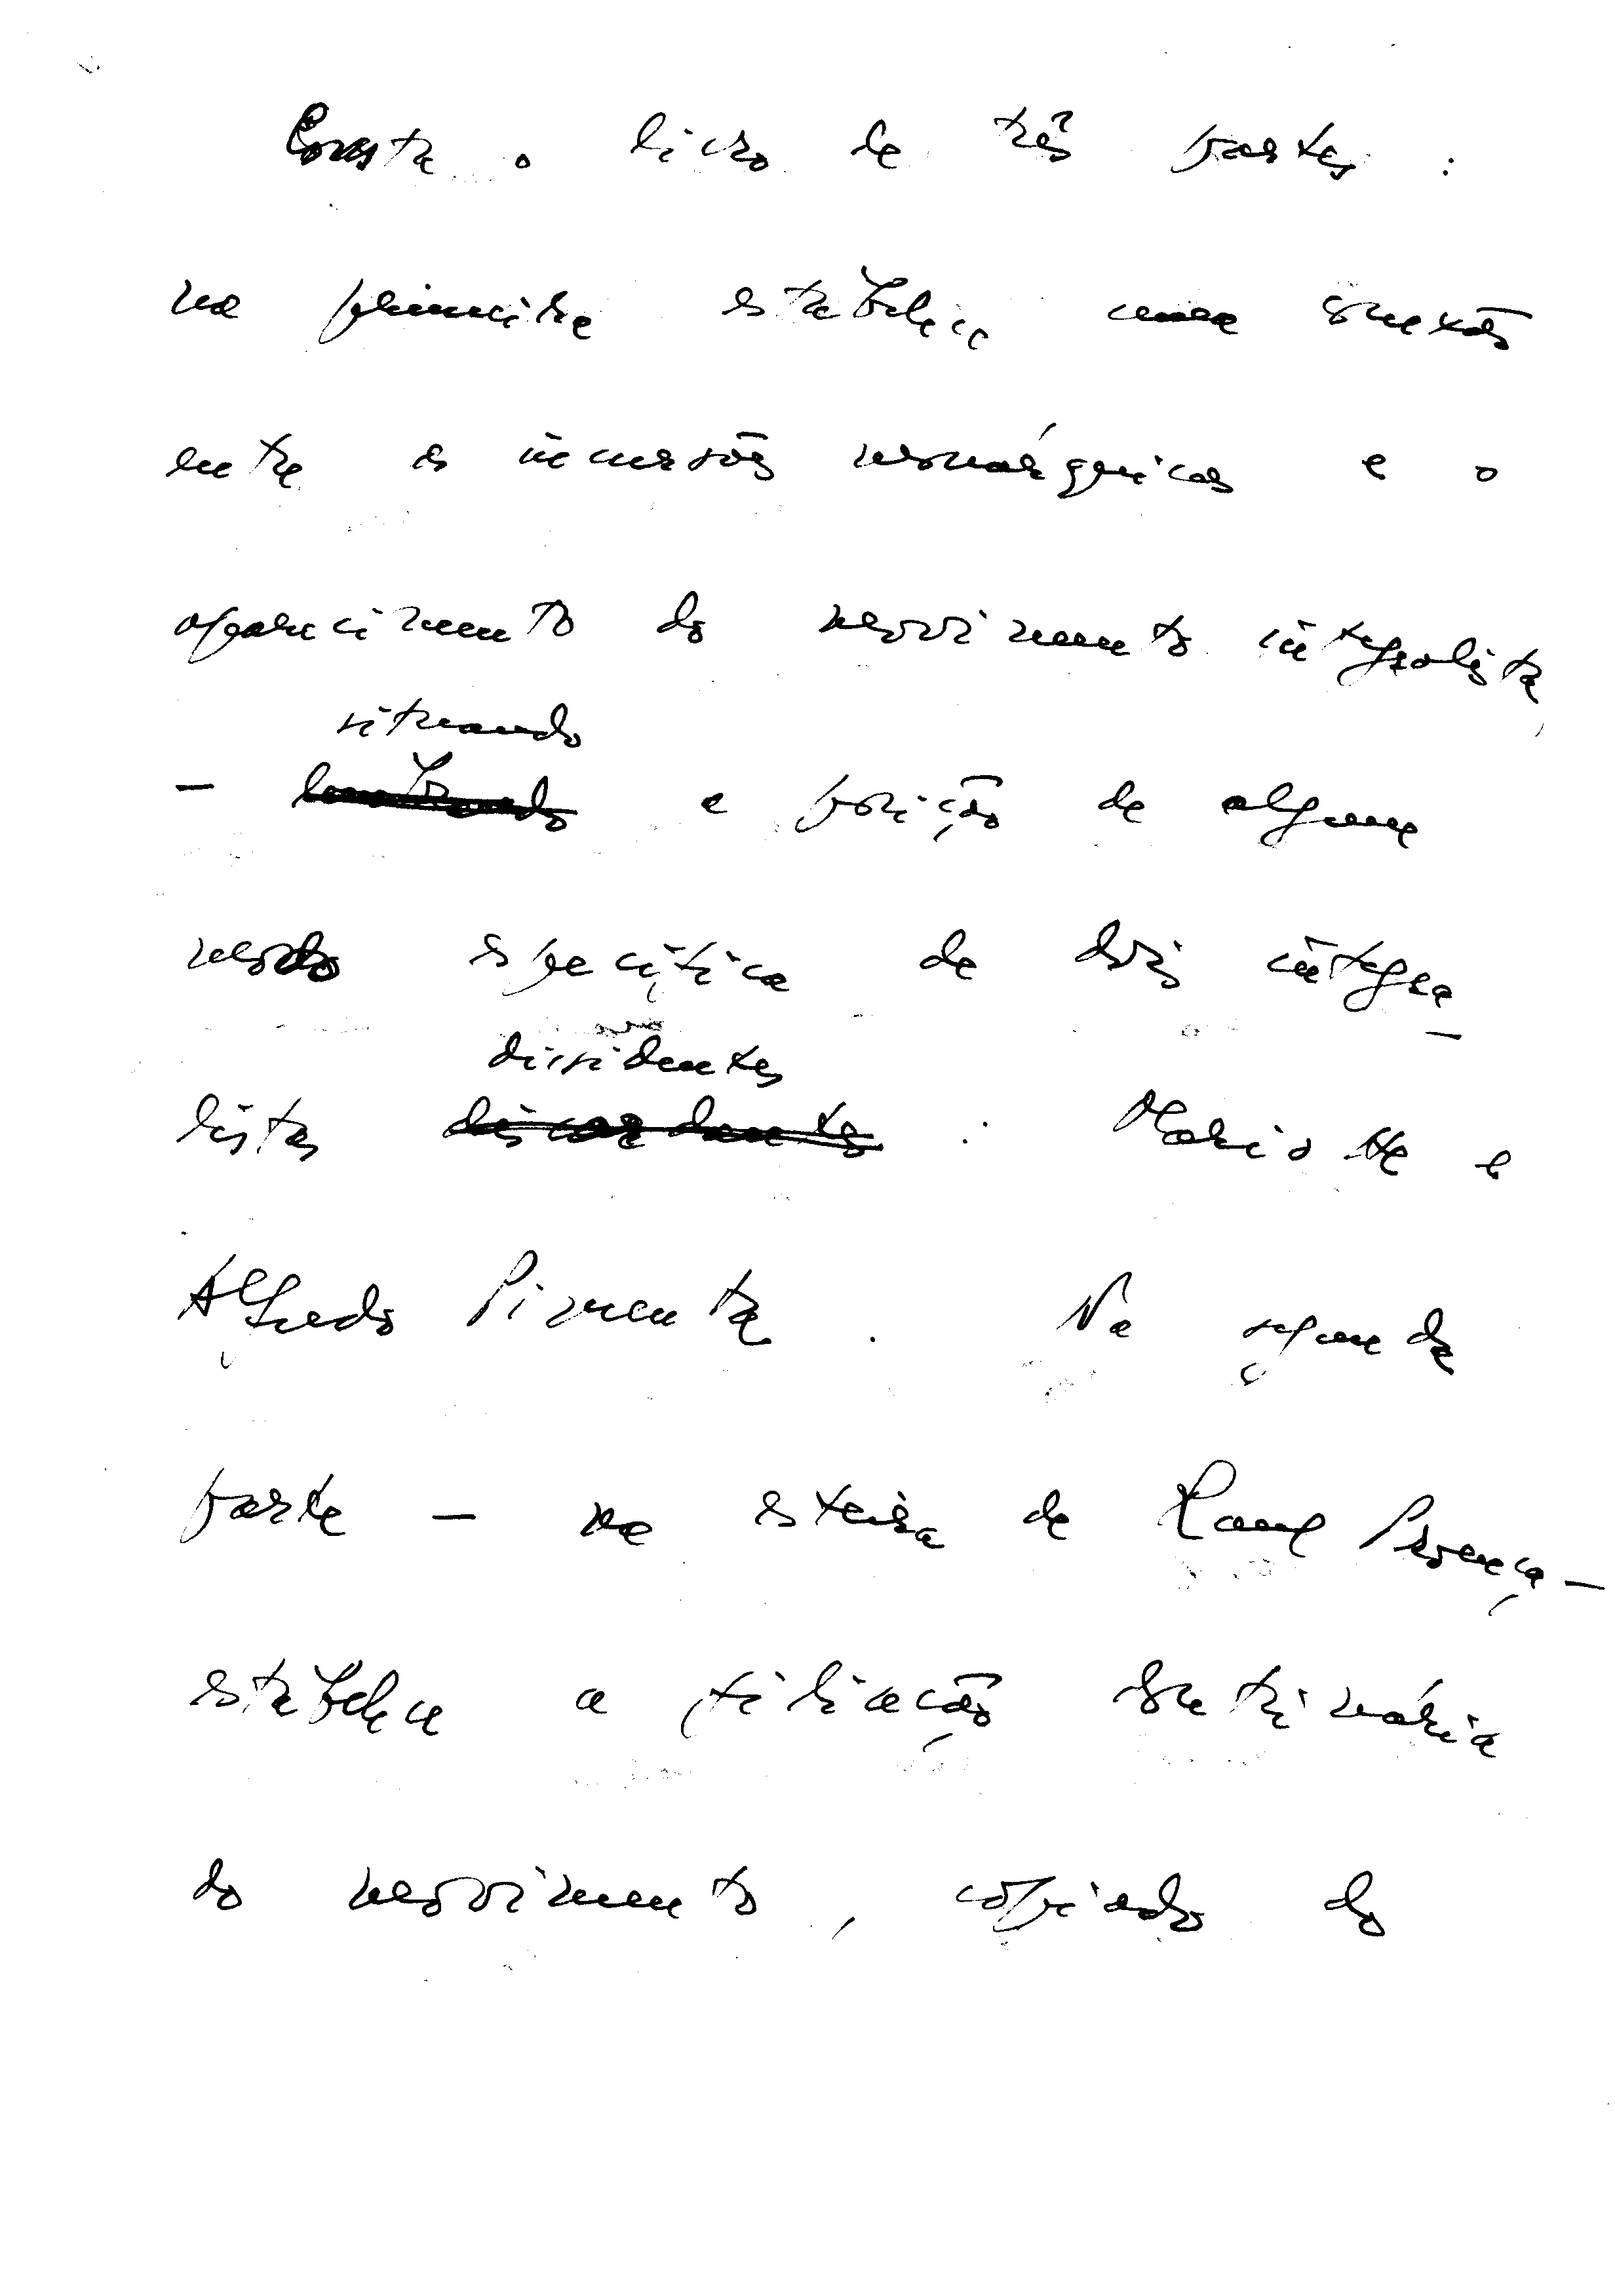 Consta o livro de três partes :
na primeira estabelece uma conexão
entre as incursões monárquicas e o
aparecimento do movimento integralista,
situando
- lembrando a posição de algum
modo específica de dois integra-
dissidentes
listas discordantes : Mariotte e
Alfredo Pimenta . Na segunda
parte - na esteira de Raul Proença -
estabelece a filiação doutrinária
do movimento , copiado do